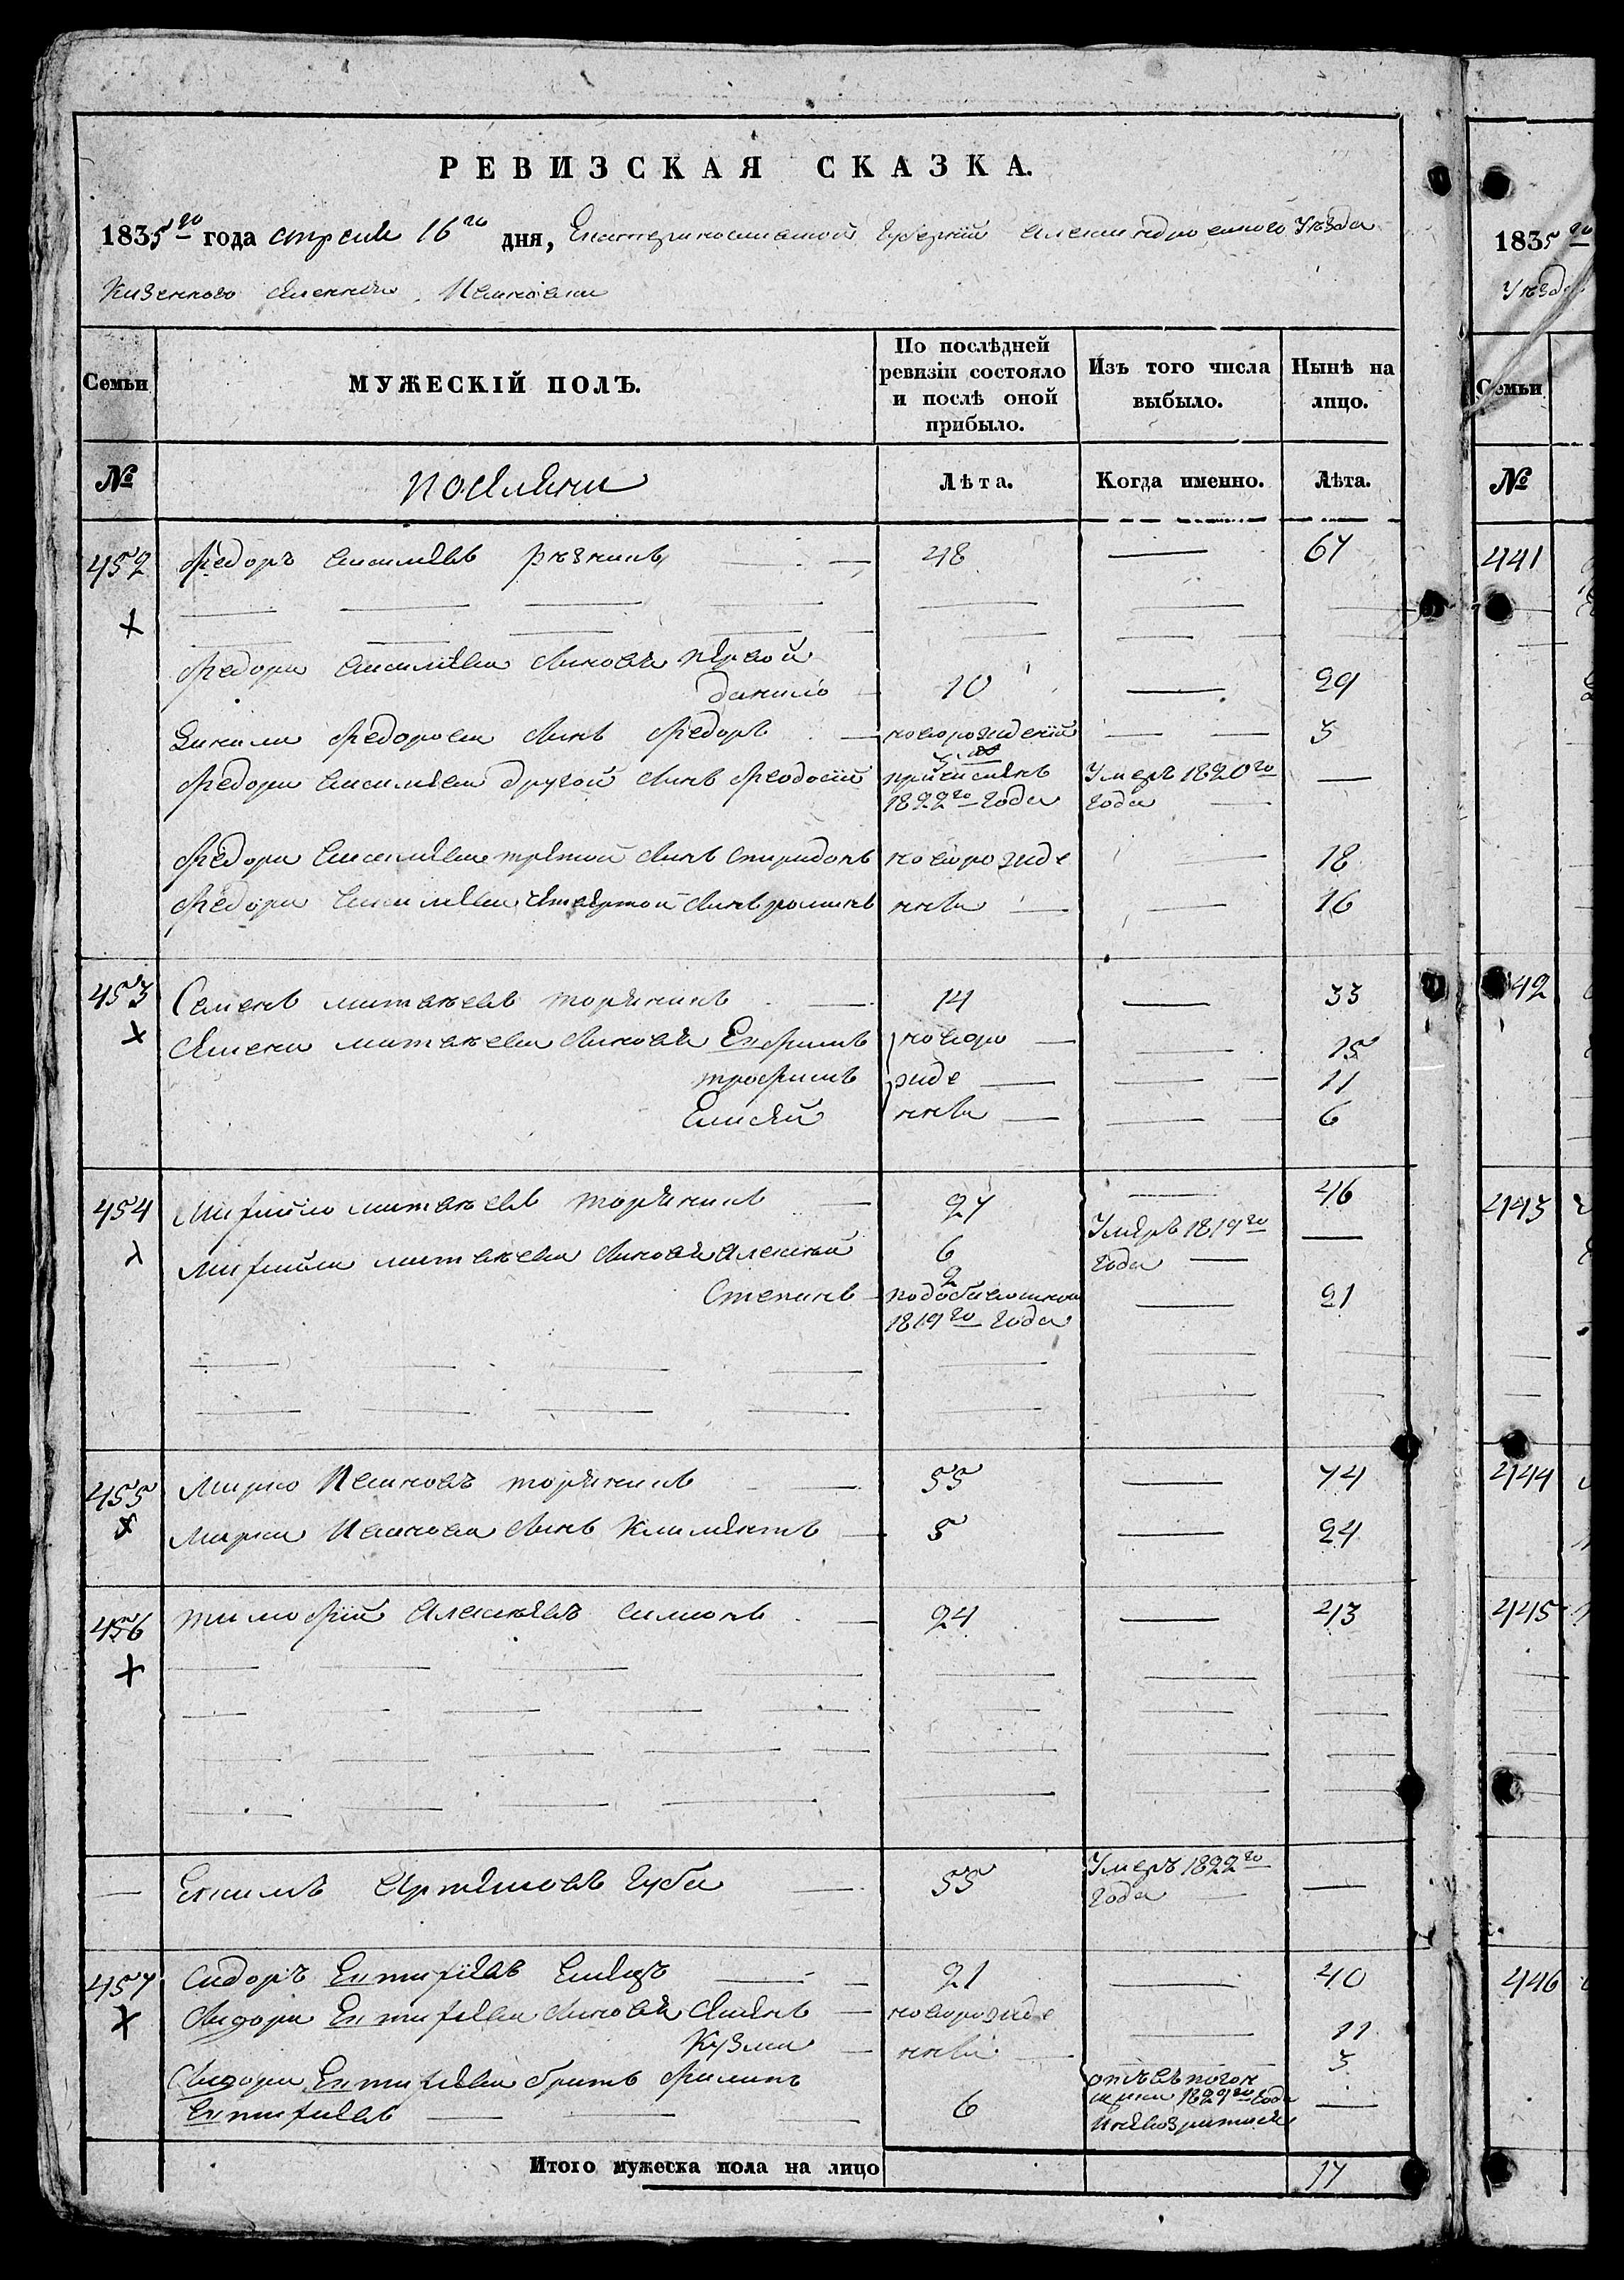 РЕВИЗСКАЯ СКАЗКА.
1835 го года апреля 16 го дня, Екатеринославской Губернии Александровского Уезда
Казенного селения Ивановки
Семьи
МУЖЕСКІЙ ПОЛЪ.
По послѣдней ревизіи состояло и послѣ оной прибыло.
Изъ того числа выбыло.
Нынѣ на лицо.
№
Лѣта.
Когда именно.
Лѣта.
452 Федоръ Василевъ 48 — 67
Федора Василева синовя первой
Данило 10 — 29
Данила Федорова синъ Федоръ новорожденій — 3
Федора Василева другой синъ Феодосій 5 причисленъ 1822 го года Умеръ 1820 го года —
Федора Василева третой синъ Спиридонъ новорожде — 18
Федора Василева четвертой синъ романъ ннѣи — 16
453 Семенъ матвѣевъ торянинъ 14 — 33
Семена матвѣева синовя Евфимъ новоро — 15
трофимъ жде — 11
Елисей ннѣи — 6
454 михайло матвѣевъ торянинъ 27 — 46
михайла матвѣева синовя алексей 6 Умеръ 1819 го года —
Степанъ 2 1819 го года — 21
455 марко Ивановъ торянинъ 55 — 74
марка Иванова синъ Климентъ 5 — 24
456 тимофей алексѣевъ 24 — 43
— Екимъ Артемовъ Губа 55 Умеръ 1822 го года —
457 Сидоръ Евтифіевъ 21 — 40
Сидора Евтифіева синовя новорожде — 11
Кузма ннѣи — 3
Сидора Евтифіева братъ Филипъ
Евтифіевъ — 6 1829 го года —
Итого мужеска пола на лицо 17
1835 го
Уѣзда
Семьи
№
441
442
443
444
445
446